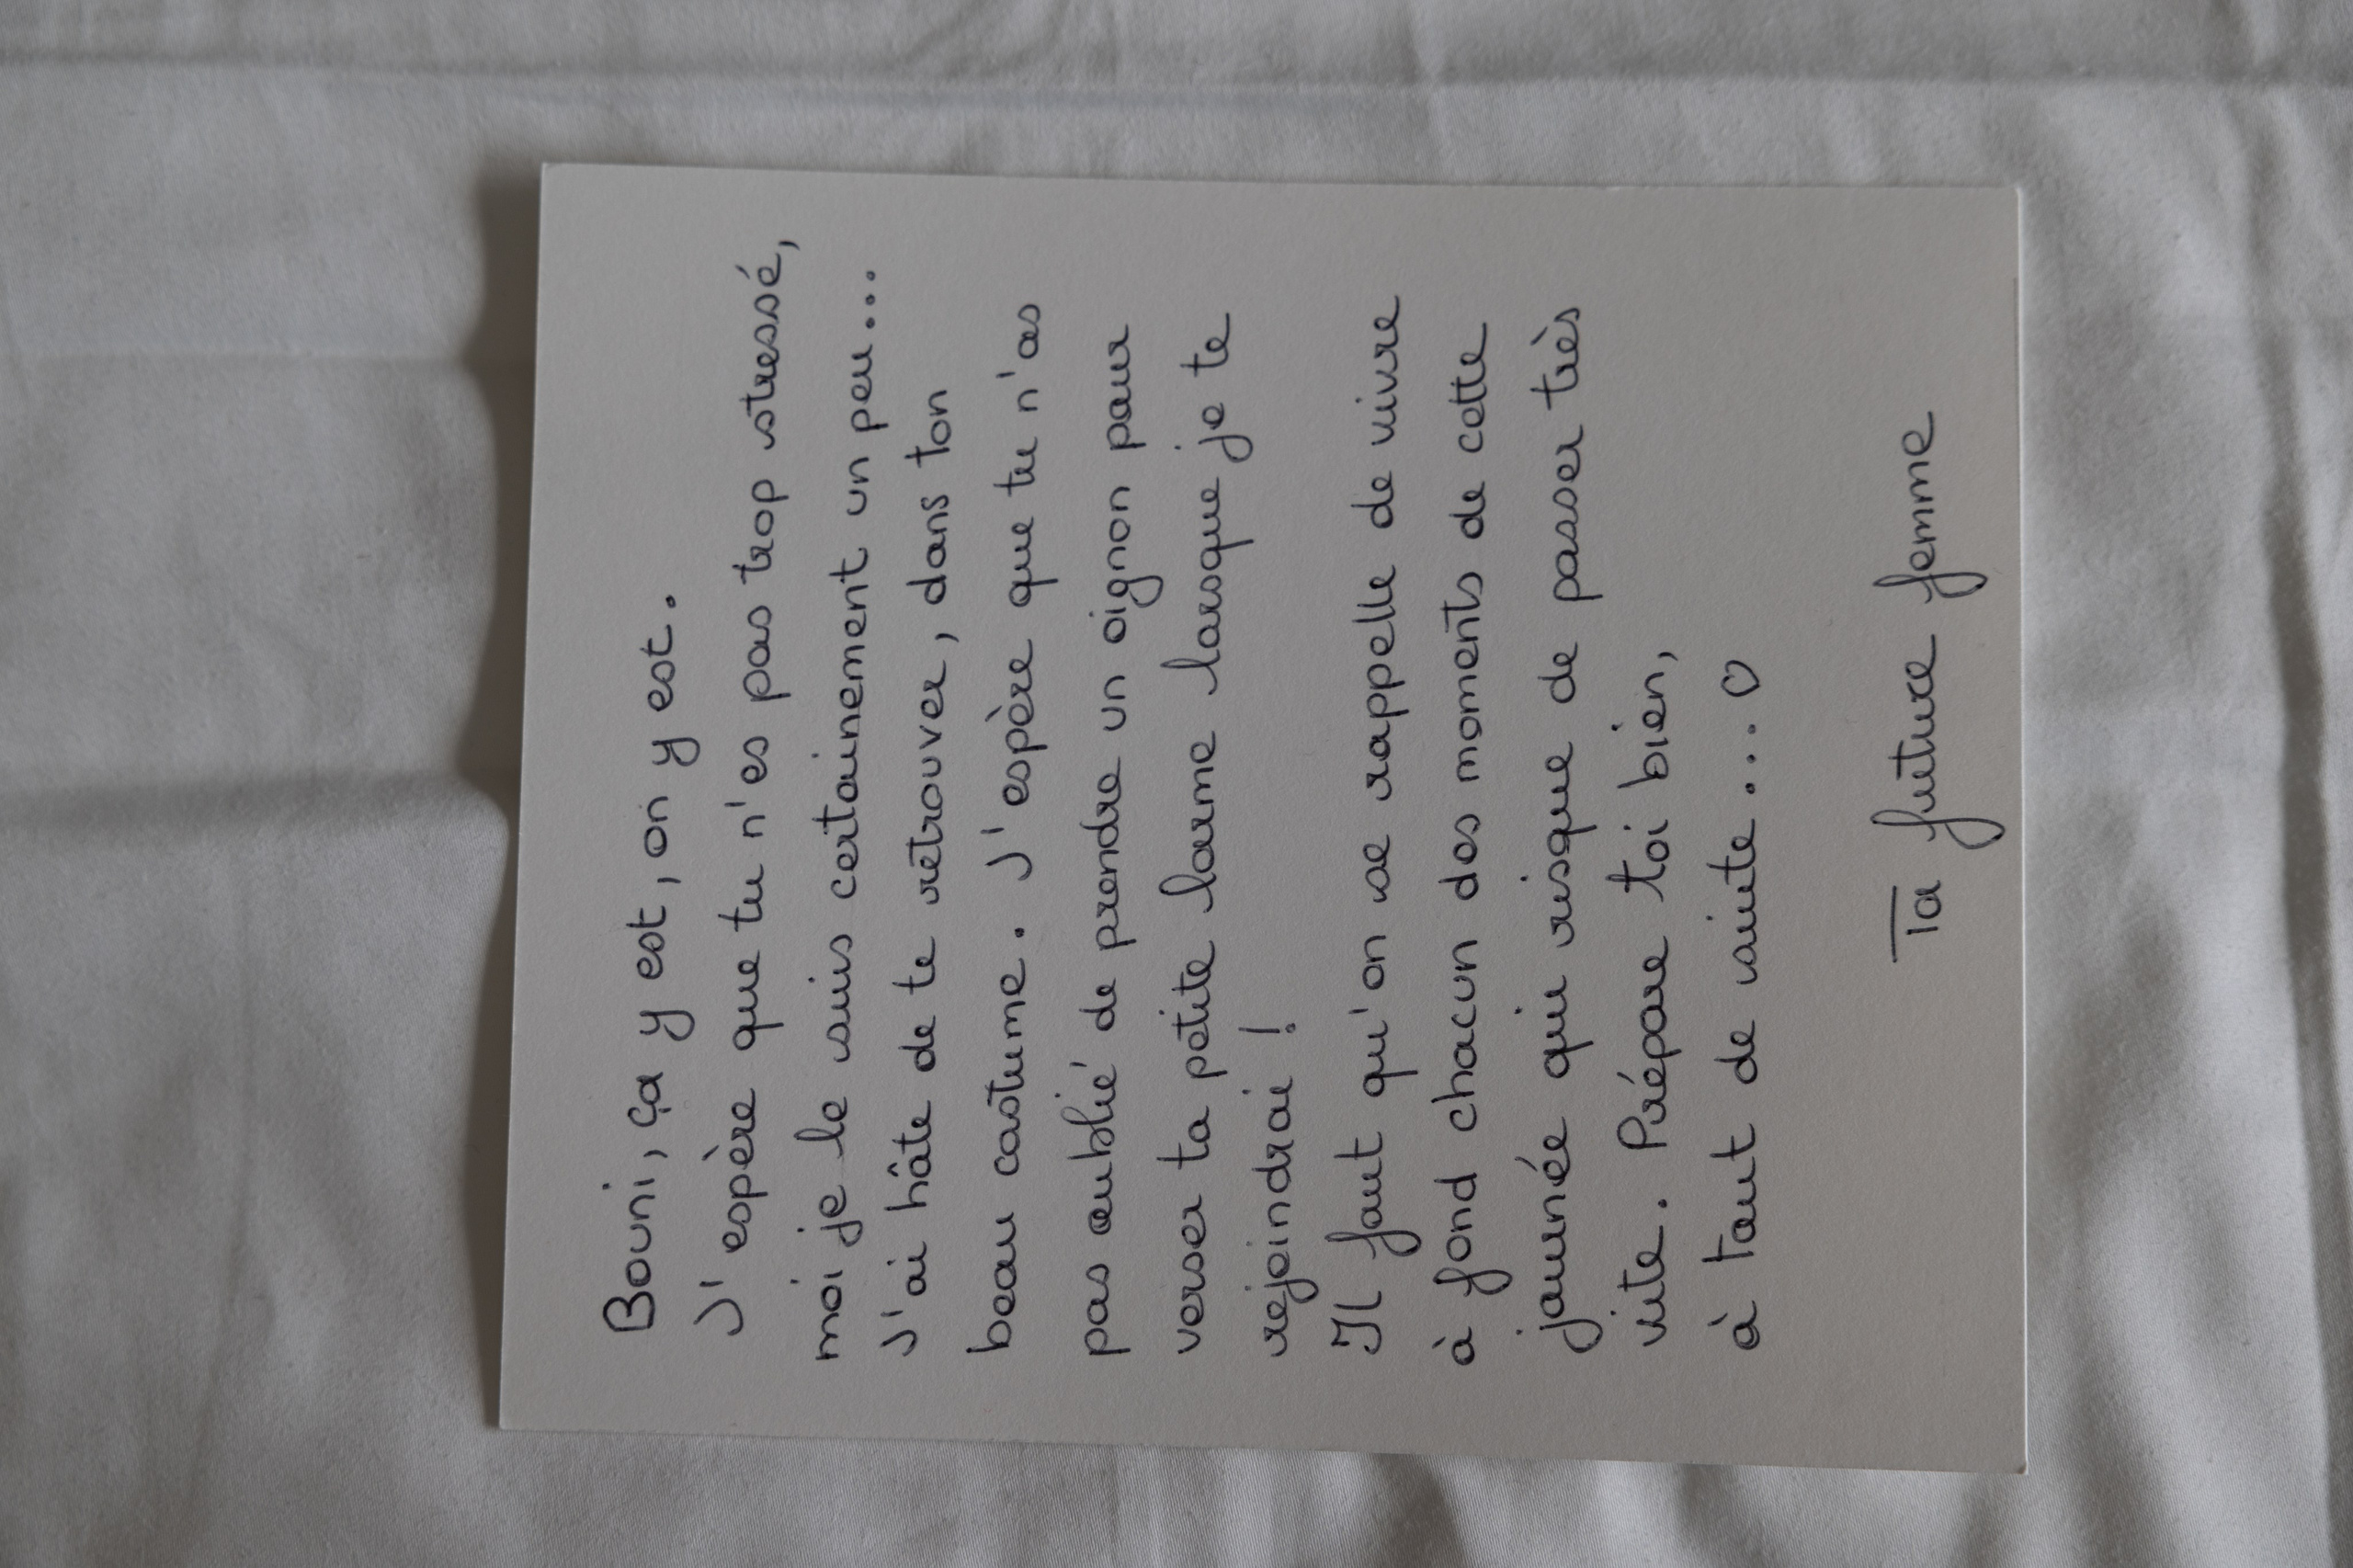 Bouni, ça y est, on y est.
J'espère que tu n'es pas trop stressé,
moi je le suis certainement un peu...
J'ai hâte de te retrouver, dans ton
beau costume. J'espère que tu n'as
pas oublié de prendre un oignon pour
verser ta petite larme lorsque je te
rejoindrai !
Il faut qu'on se rappelle de vivre
à fond chacun des moments de cette
journée qui risque de passer très
vite. Prépare toi bien,
à tout de suite... ♡
Ta future femme